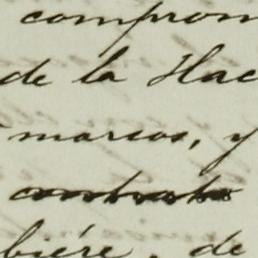 comprom
de la Hac
marcos, y
contrato
biére, de